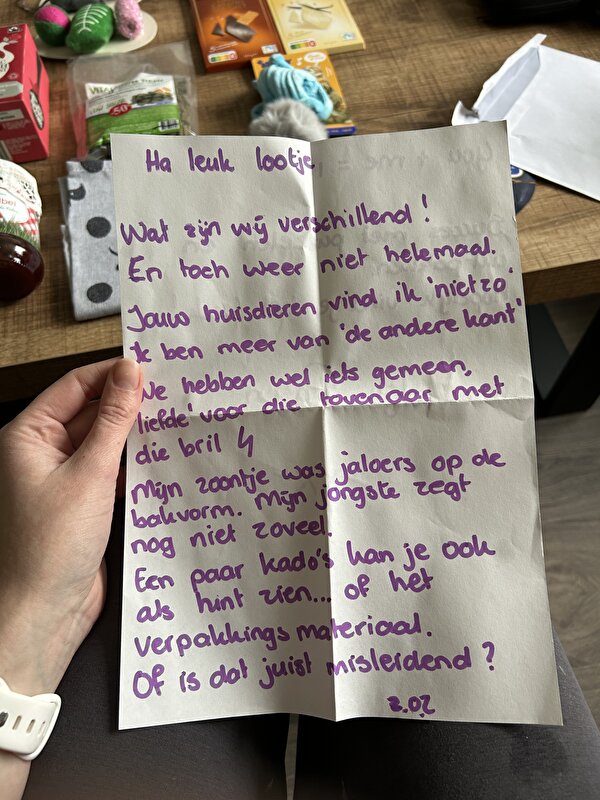 Ha leuk lootje,
Wat zijn wij verschillend!
En toch weer niet helemaal.
Jouw huisdieren vind ik 'niet zo'.
Ik ben meer van 'de andere kant'
We hebben wel iets gemeen,
'liefde' voor die tovenaar met
die bril ϟ
Mijn zoontje was jaloers op de
bakvorm. Mijn jongste zegt
nog niet zoveel.
Een paar kado's kan je ook
als hint zien... of het
verpakkingsmateriaal.
Of is dat juist misleidend?
z.o.z